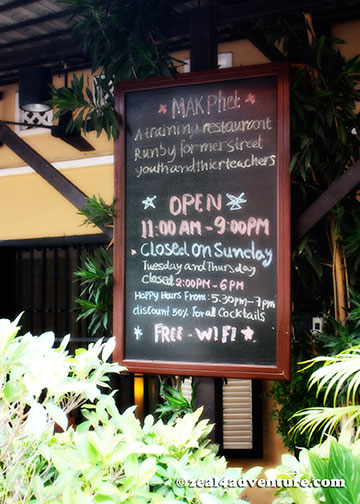 MAK Phet
A training restaurant
Run by former street
youth and thier teachers
OPEN
11:00 AM - 9:00PM
Closed on Sunday
Tuesday and Thursday
closed 2:00PM - 6PM
Happy Hours From: 5:30pm - 7pm
discount 50% For all Cocktails
FREE - WIFI
©zeal4adventure.com